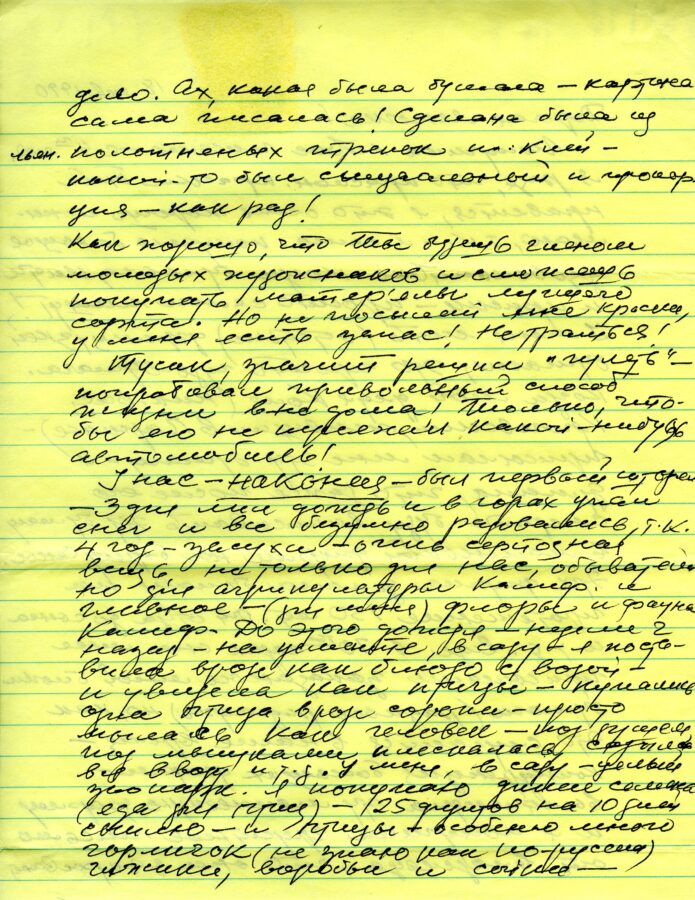 дело. Ах, какая была бумага – картина
сама писалась! Сделана была из
льян. полотняных тряпок и клей –
какой-то был специальный и пропор
ция – как раз!
Как хорошо, что Ты будешь членом
молодых художников и сможешь
покупать матерьелы лучшего
сорта. Но не посылай мне краски,
у меня есть запас! Не траться!
Тусик, значит решил "гулять" –
попробовал привольный способ
жизни вне дома! Только, что-
бы его не переехал какой-нибудь
автомобиль!
У нас – наконец – был первый шторм
– 3 дня лил дождь и в горах упал
снег и все безумно радовались, т.к.
4 год – засухи – очень серьозная
вещь не только для нас, обывателей
но для агрикулатуры Калиф. и
главное – (для меня) флоры и фауны
Калиф. До этого дождя – недели 2
назад – на участке, в саду – я поста-
вила вроде как блюдо с водой –
и увидела как птицы – купались
одна птица, вроде сороки – просто
мылась как человек – под душем
под мышками плескалась
вся в воду и т.д. У меня, в саду – целый
зоопарк. Я покупаю дикие семена
(еда для птиц) – 25 фунтов на 10 дней
– и птицы – особенно много
горличок (не знаю как по-русски)
чижики, воробьи и сойки –